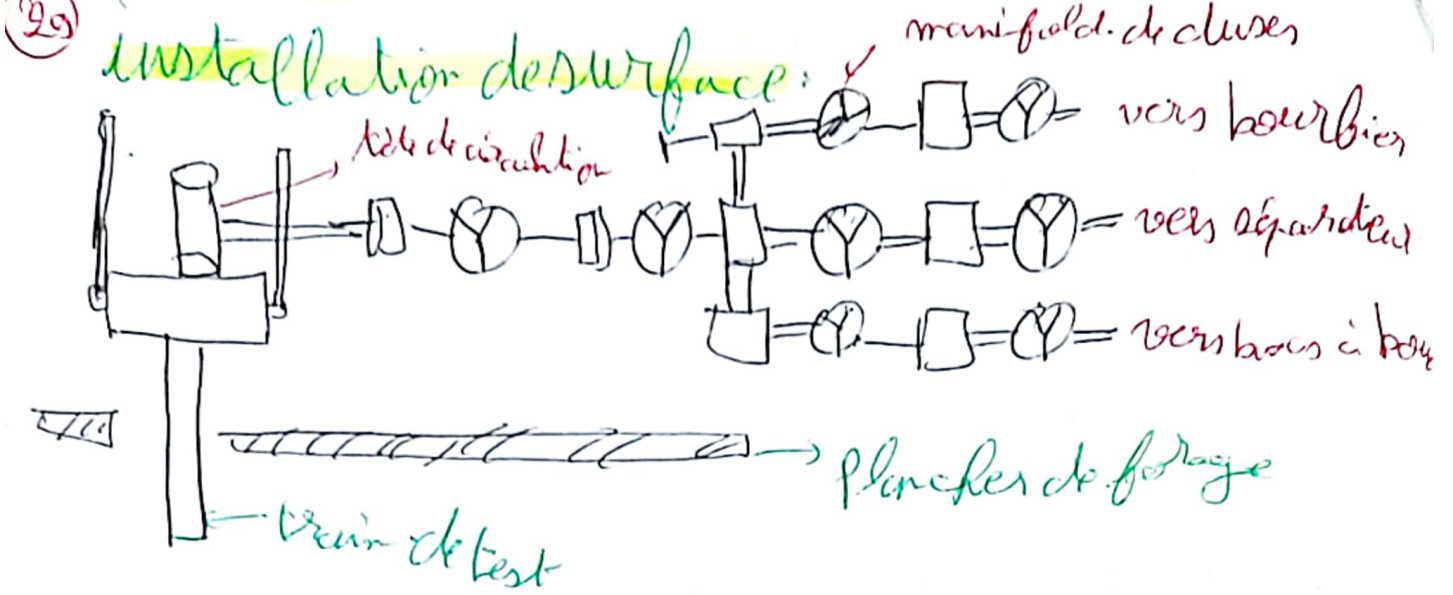 29
installation de surface:
manifold. de duses
tête de circulation
vers bourbier
vers séparateur
vers bacs à boue
plancher de forage
train de test